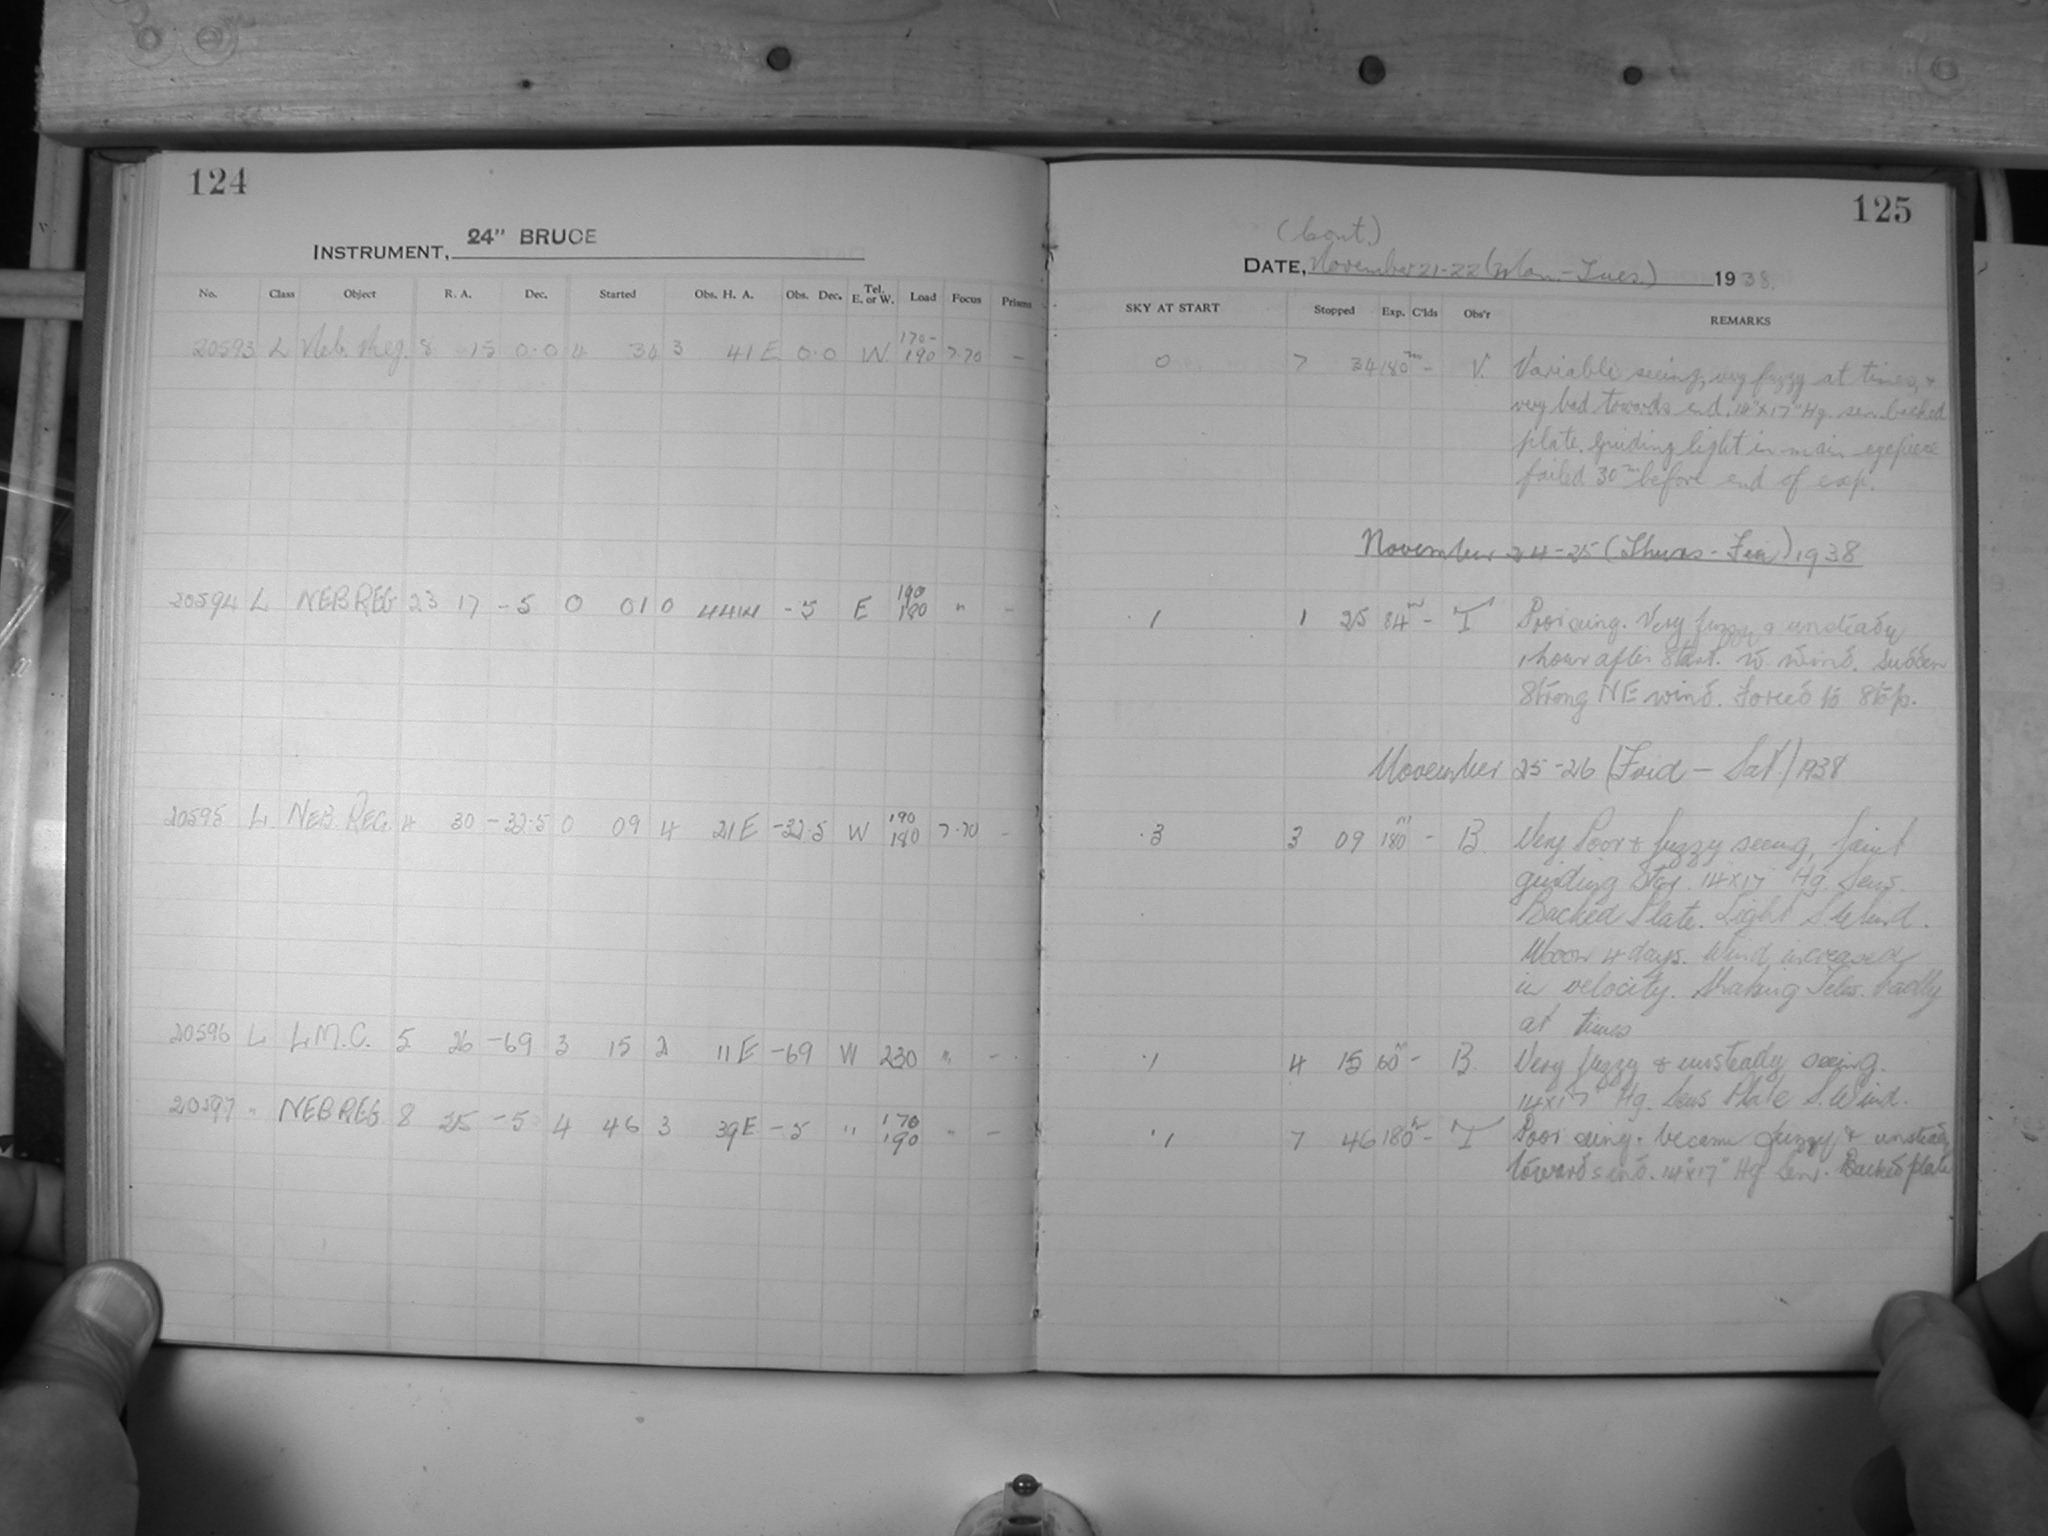 124
INSTRUMENT, 24" BRUCE
No. Class Object R. A. Dec. Started Obs. H. A. Obs. Dec. Tel. E. or W. Load Focus Prisms
20593 L Neb. Reg. 8 15 0.0 4 34 3 41 E 0.0 W 170- 190 7.70 –
20594 L NEB REG 23 17 -5 0 01 0 44 W -5 E 190 180 " –
20595 L NEB. REG. 4 30 -32.5 0 09 4 21 E -32.5 W 190 180 7.70 –
20596 L L.M.C. 5 26 -69 3 15 2 11 E -69 W 230 " –
20597 " NEB REG 8 25 -5 4 46 3 39 E -5 " 170 190 " –
125
(Cont.)
DATE, November 21-22 (Mon.-Tues.) 1938.
SKY AT START Stopped Exp. C'lds Obs'r REMARKS
0 7 34 180m – V. Variable seeing, very fuzzy at times, +
very bad towards end. 14"x17" Hg. sen. backed
plate. Guiding light in main eyepiece
failed 30m before end of exp.
November 24-25 (Thurs-Fri) 1938
.1 1 25 84m – T Poor seing. Very fuzzy & unsteady
1 hour after start. W wind. Sudden
Strong NE wind. Forced to stop.
November 25-26 (Frid – Sat) 1938
.3 3 09 180m – B. Very Poor & fuzzy seeing, faint
guiding star. 14x17" Hg. Sens.
Backed Plate. Light S. Wind.
Moon 4 days. Wind increased
in velocity. Shaking Teles. badly
at times
.1 4 15 60m – B. Very fuzzy & unsteady seeing.
14x17" Hg. Sens Plate S. Wind.
.1 7 46 180m – T Poor seing. became fuzzy & unsteady
towards end. 14"x17" Hg Sens. Backed plate